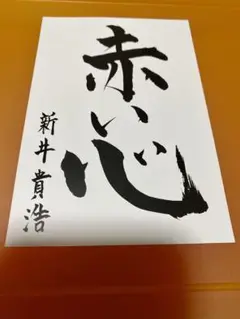 赤い心
新井貴浩